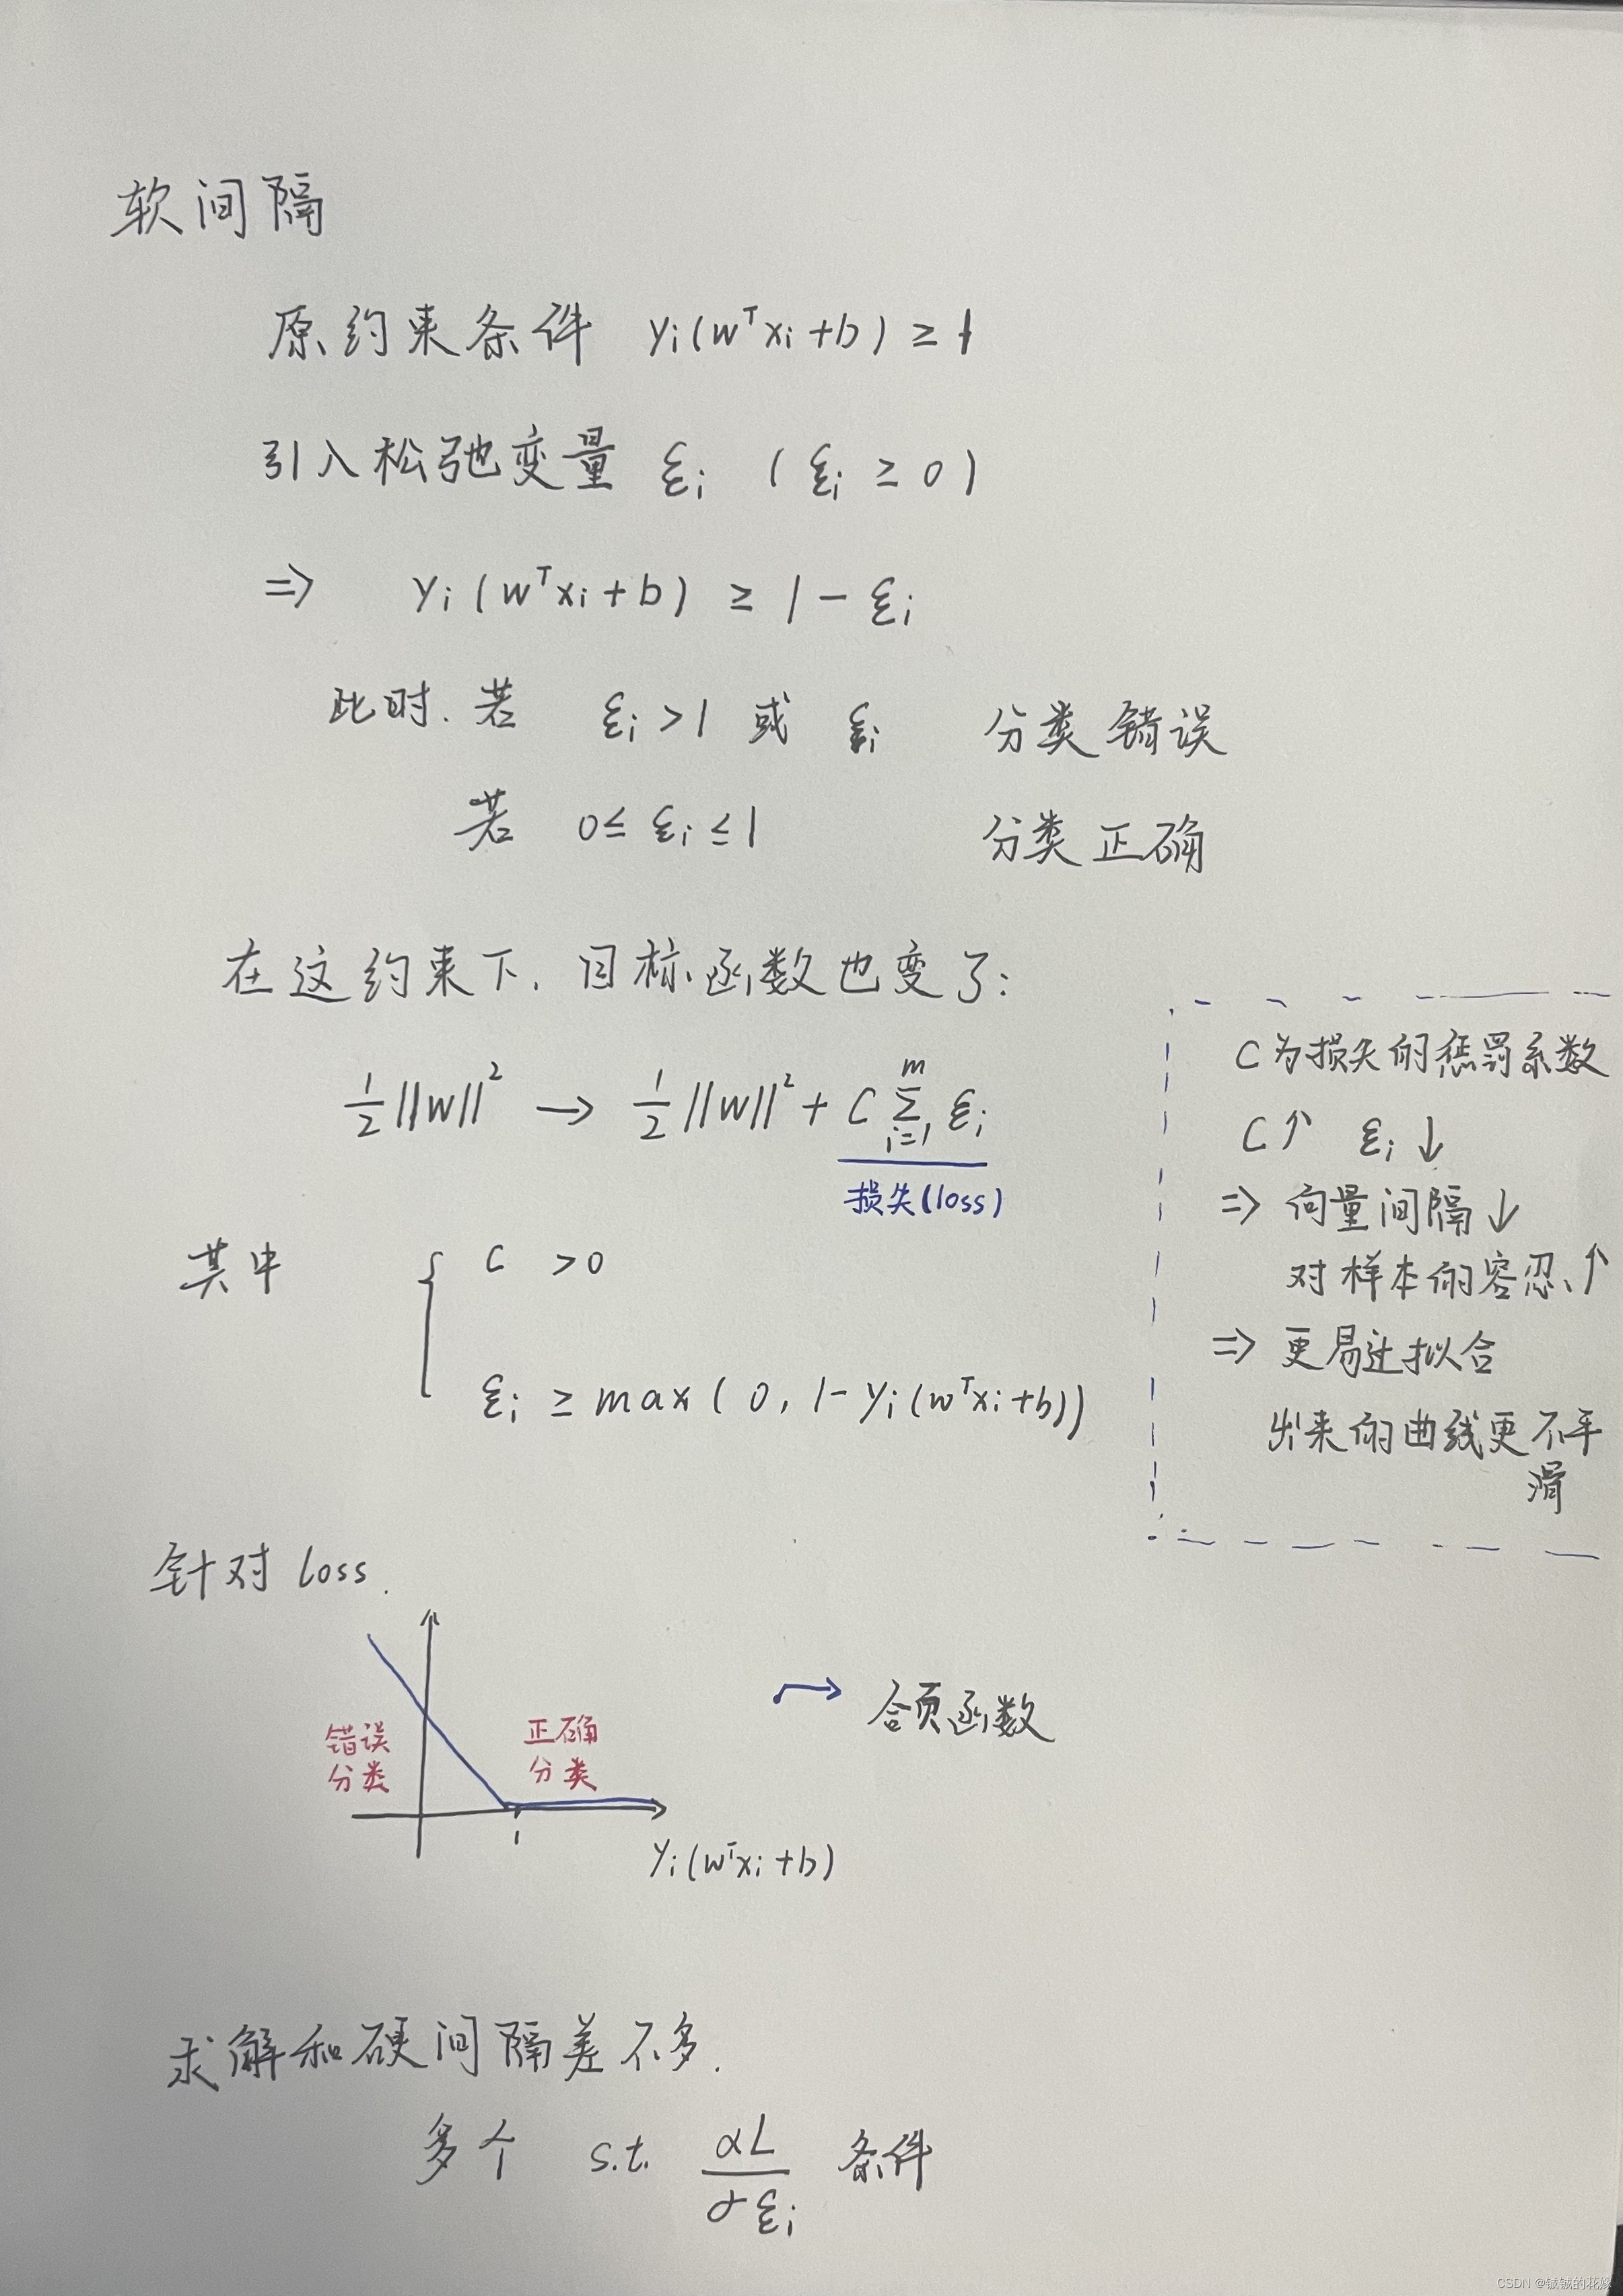 软间隔
原约束条件 yᵢ(wᵀxᵢ+b) ≥ 1
引入松弛变量 ξᵢ (ξᵢ ≥ 0)
⇒ yᵢ(wᵀxᵢ+b) ≥ 1 - ξᵢ
此时. 若 ξᵢ > 1 或 ξᵢ 分类错误
若 0 ≤ ξᵢ ≤ 1 分类正确
在这约束下. 目标函数也变了:
½||w||² → ½||w||² + C Σᵢ₌₁ᵐ ξᵢ
损失(loss)
其中 { C > 0
ξᵢ ≥ max(0, 1-yᵢ(wᵀxᵢ+b))
C为损失的惩罚系数
C↑ ξᵢ↓
⇒ 向量间隔↓
对样本的容忍↑
⇒ 更易过拟合
出来的曲线更不平
滑
针对 loss.
错误
分类
正确
分类
1
yᵢ(wᵀxᵢ+b)
合页函数
求解和硬间隔差不多.
多个 s.t. αL/αξᵢ 条件
CSDN @铖铖的花嫁